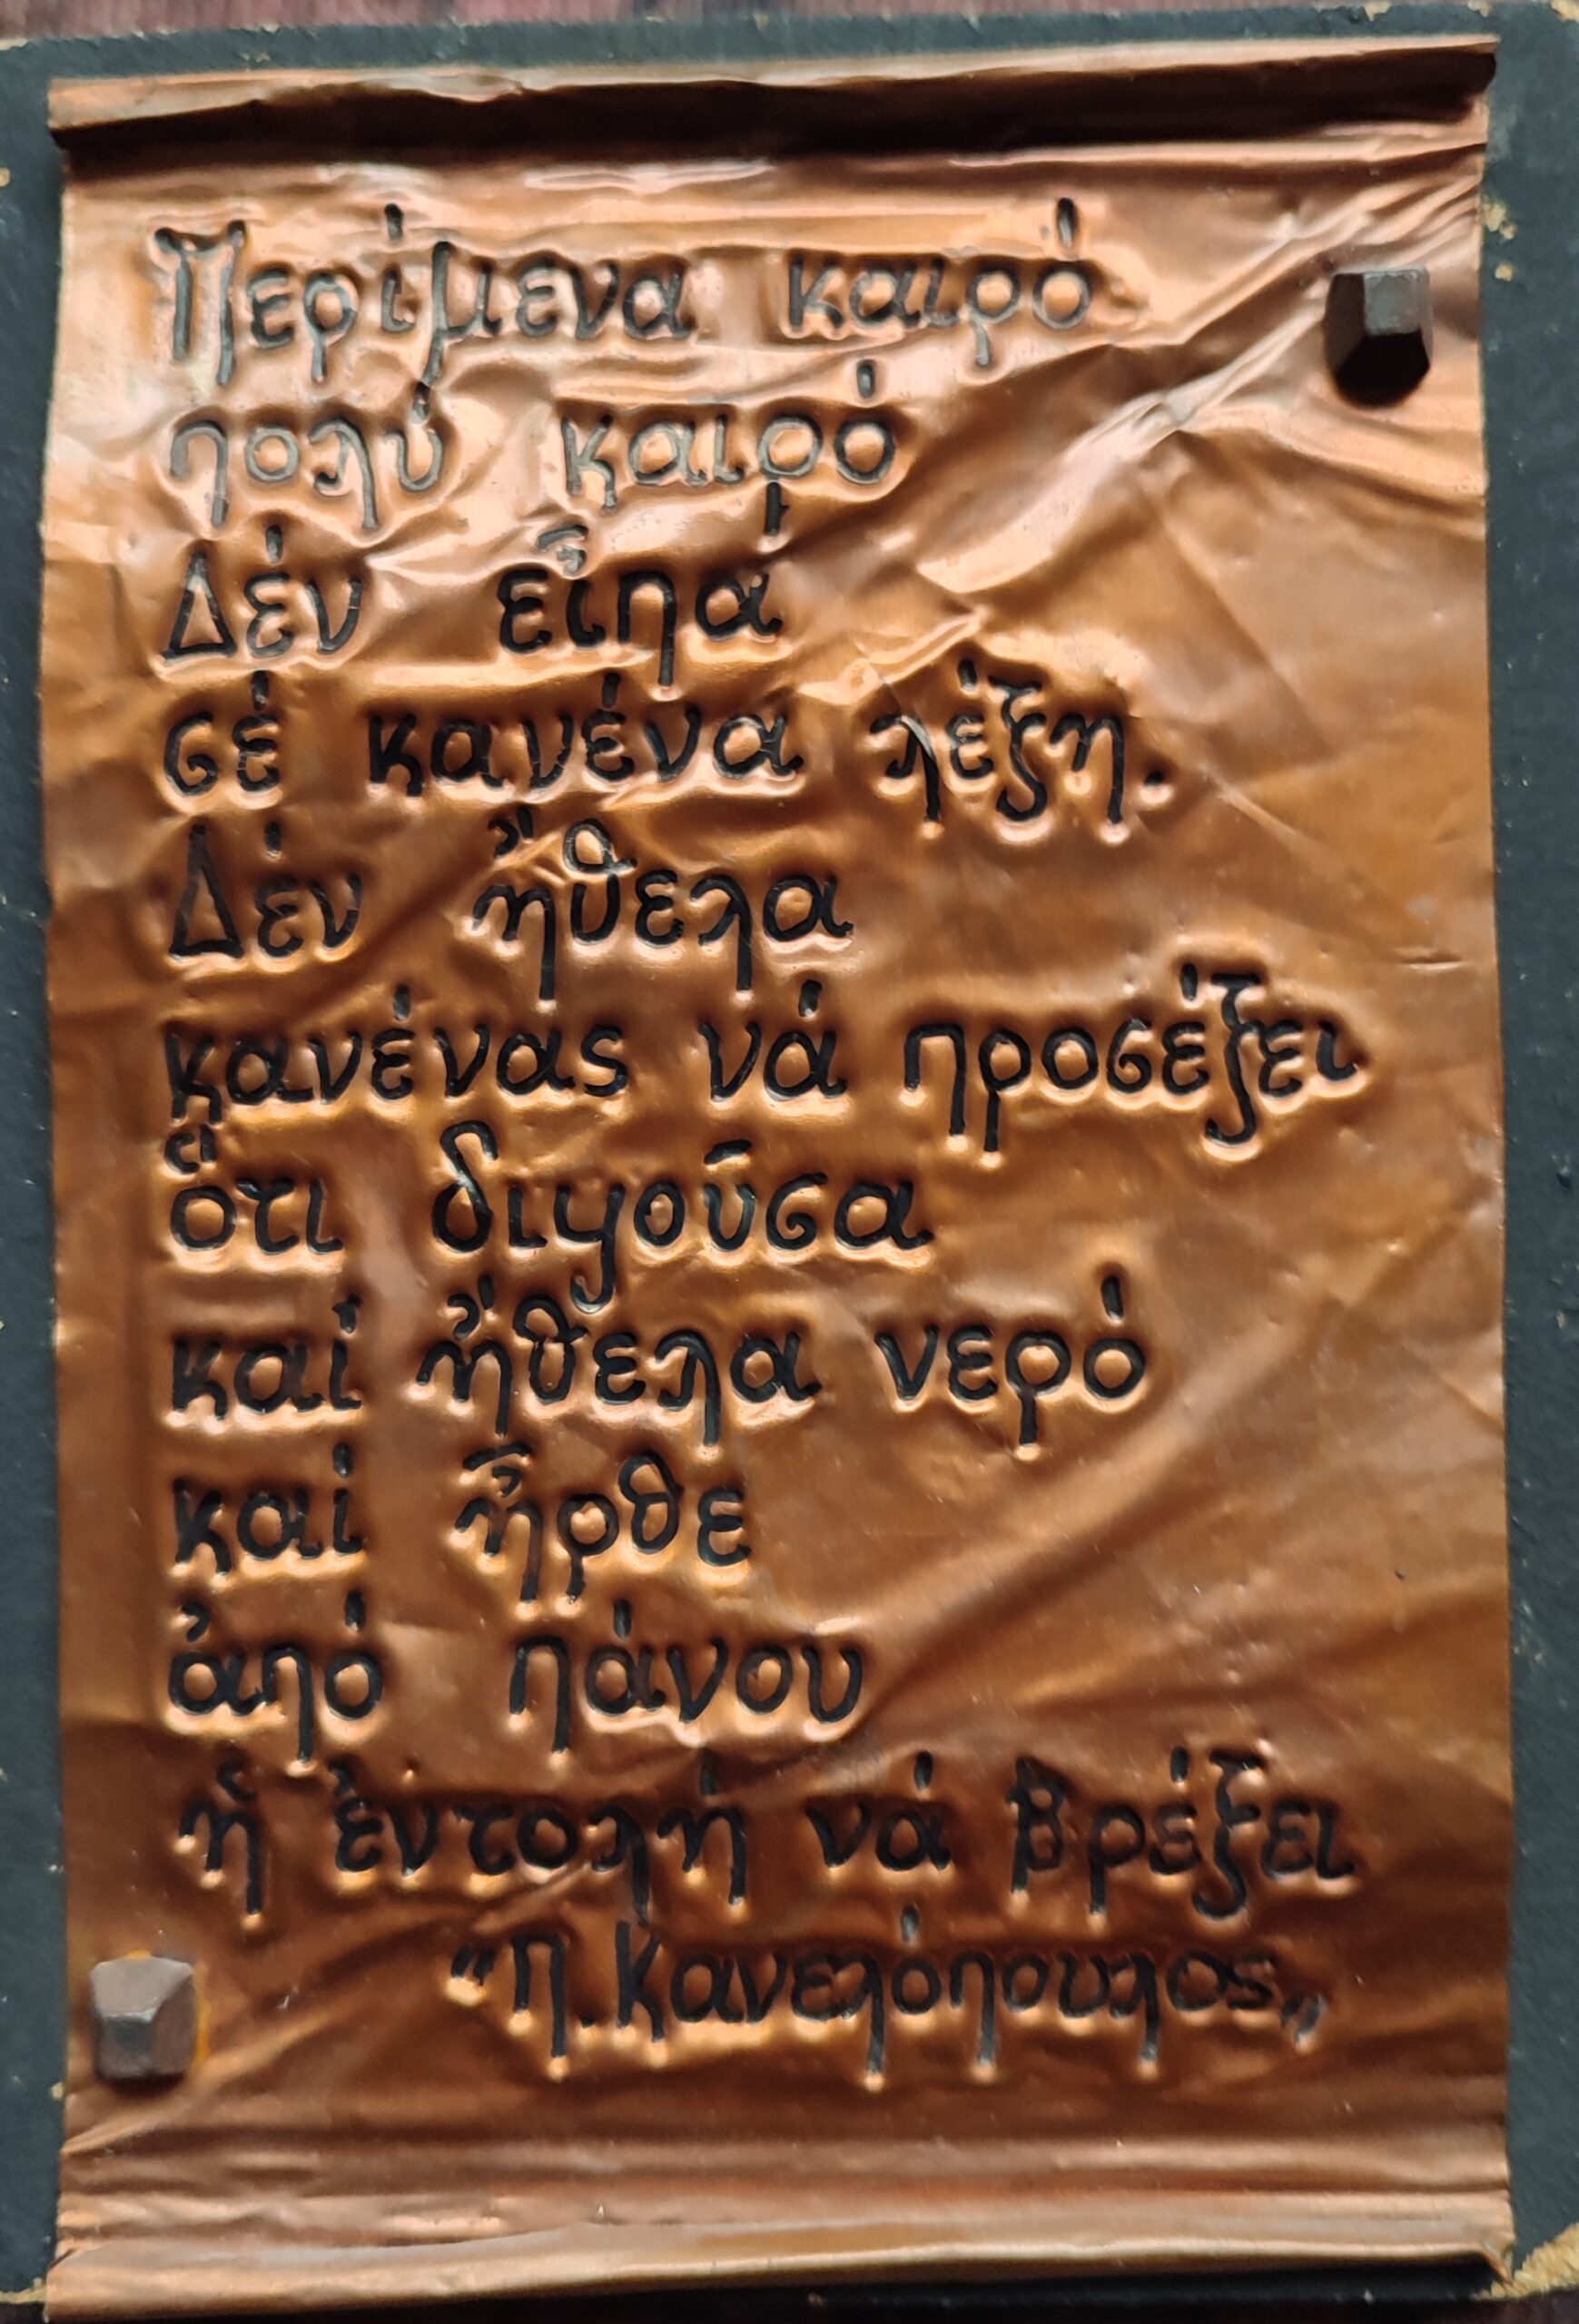 Περίμενα καιρό
πολύ καιρό
Δέν εἶπα
σέ κανένα λέξη.
Δέν ἤθελα
κανένας νά προσέξει
ὅτι διψοῦσα
καί ἤθελα νερό
καί ἦρθε
ἀπό πάνου
ἡ ἐντολή νά βρέξει
"Π. Κανελόπουλος„